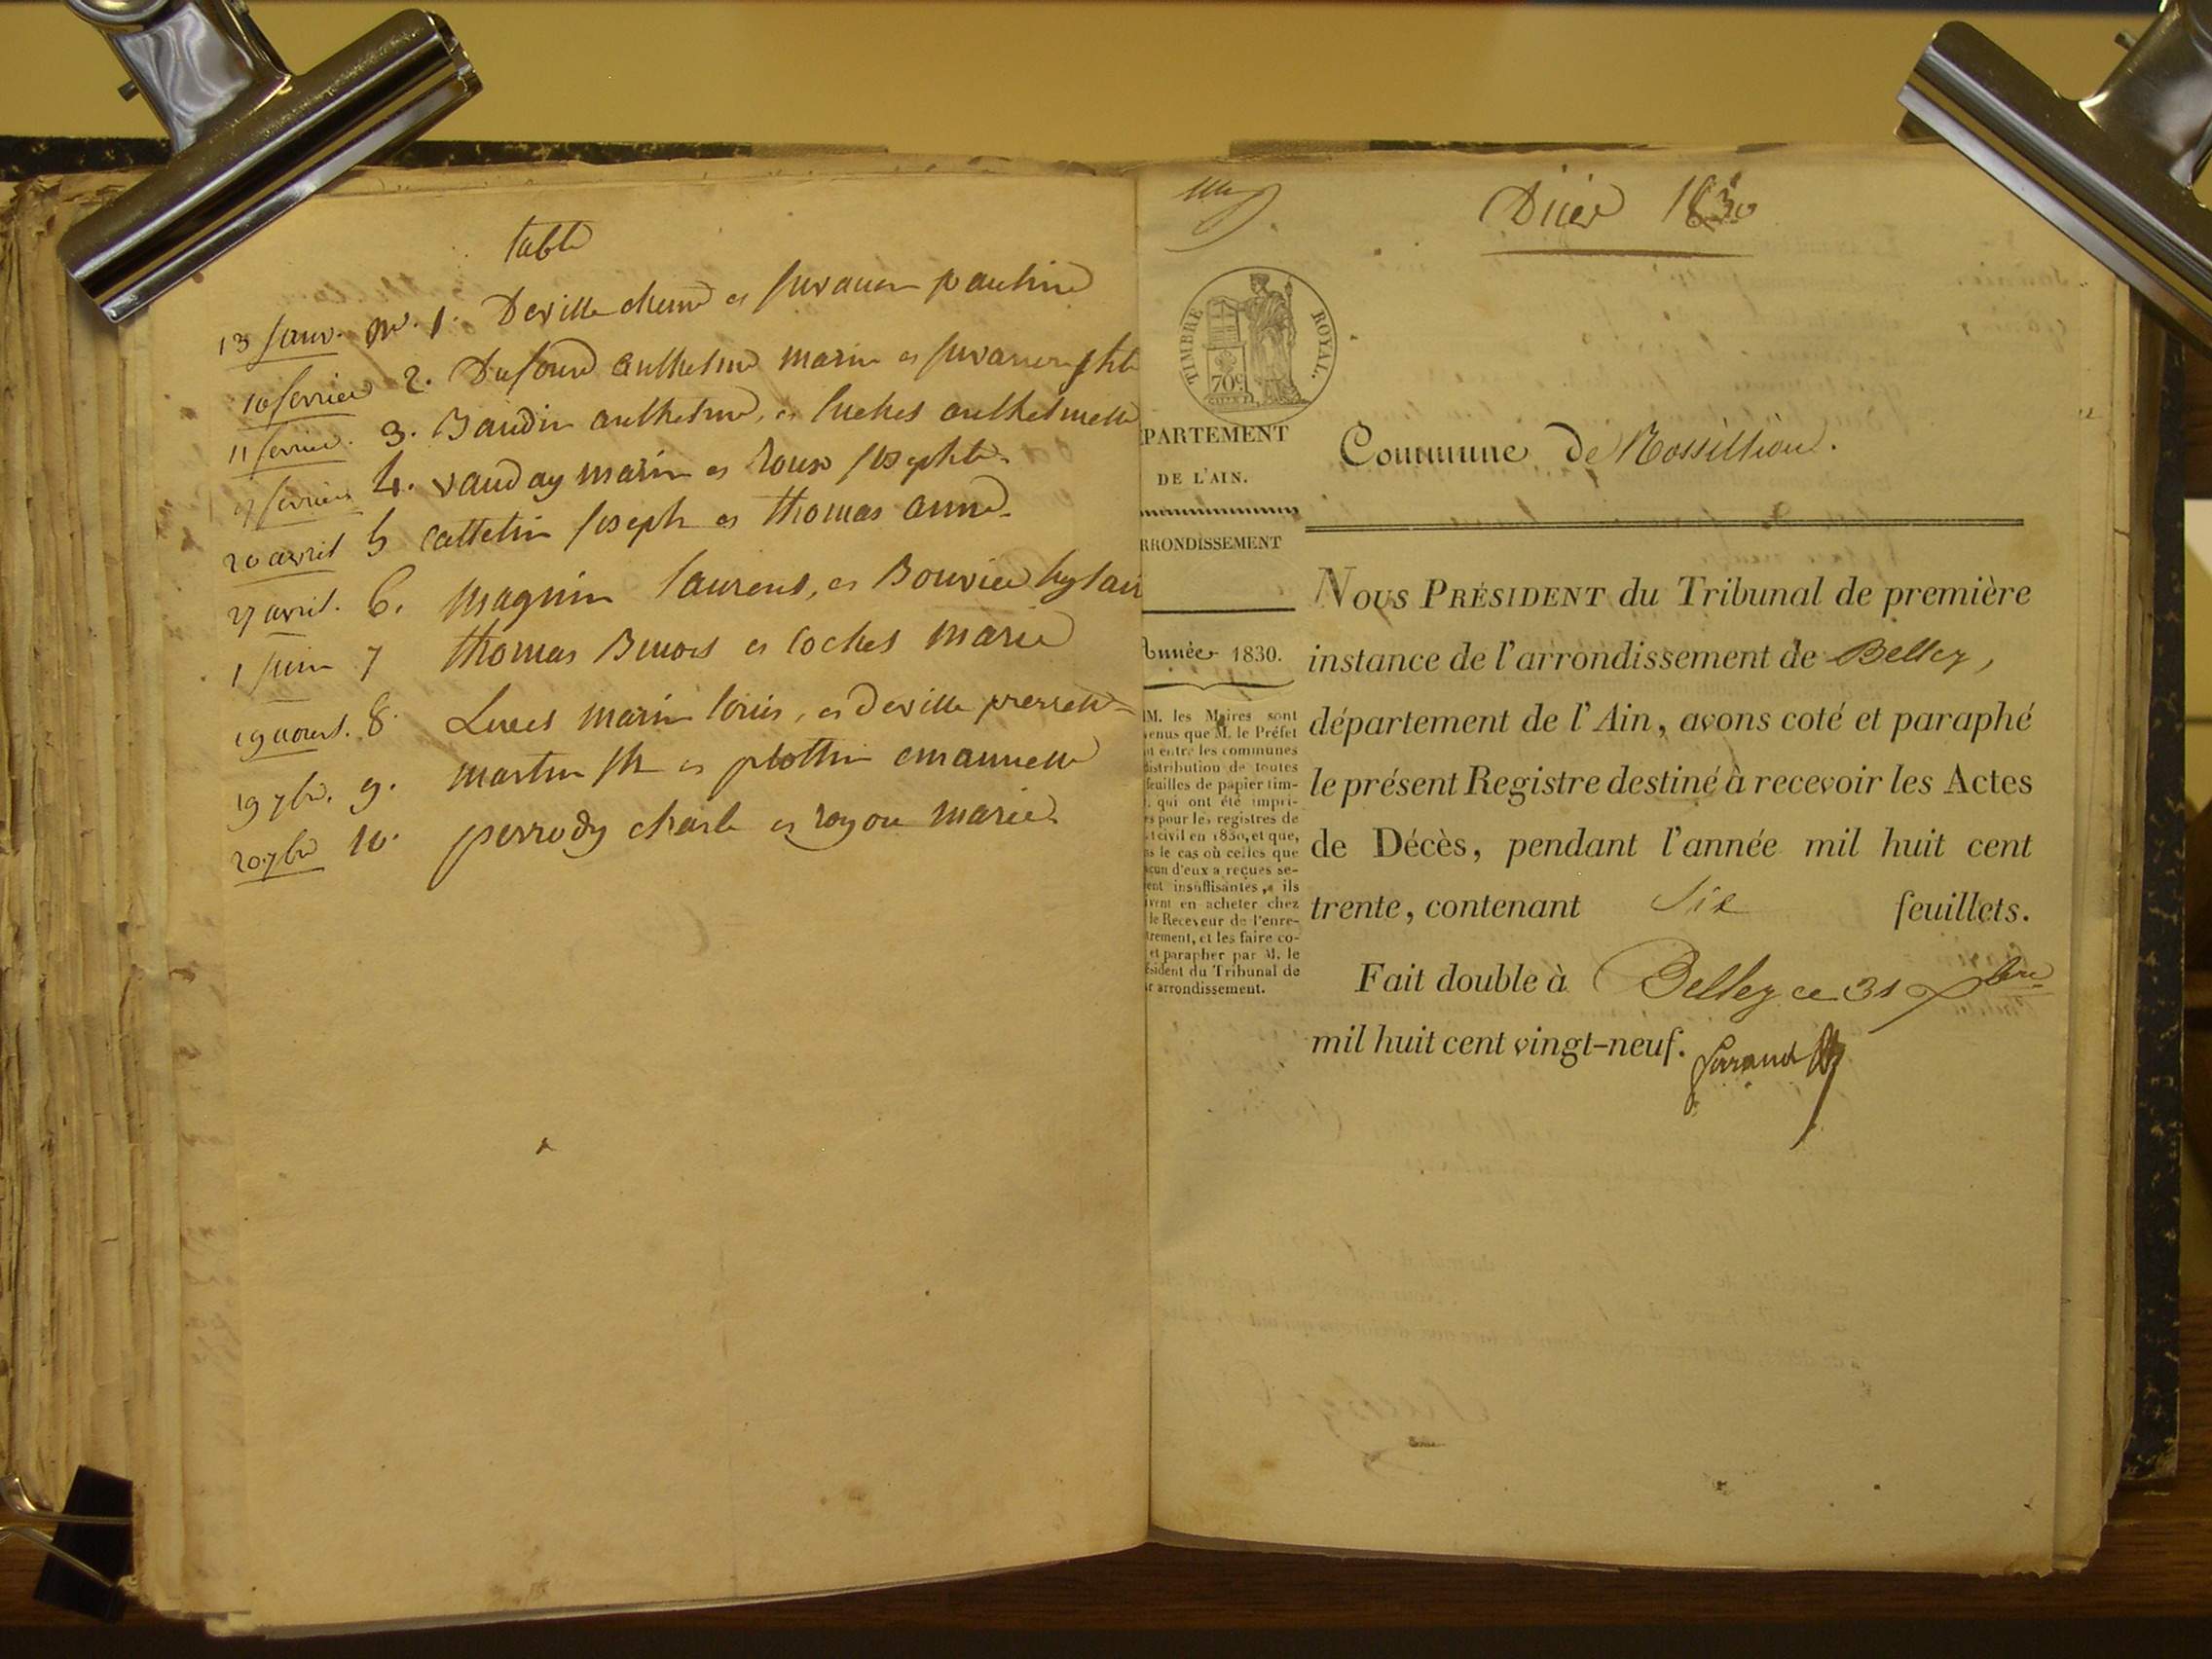 table
13 janv. no. 1. Deville et juvanon pauline
10 fevrier 2. Dufour anthelme marin et juvanon
11 fevrier. 3. anthelme, et luchet anthelmette
9 fevrier 4. vauday marin et roux josephte
20 avril 5 cattelin joseph et thomas anne
27 avril. 6. magnin laurent, et Bouvier
1 juin 7 thomas Benoit et cochet marie
19 aout. 8. marin louis, et deville
19 7bre. 9. martin et plottin
20 7bre 10. perrody charle et marie
Décès 1830
TIMBRE ROYAL.
70c
PARTEMENT
DE L'AIN.
Commune de Rossillion.
RRONDISSEMENT
Année 1830.
MM. les Maires sont
enus que M. le Préfet
it entre les communes
distribution de toutes
feuilles de papier tim-
qui ont été impri-
s pour les registres de
t civil en 1830, et que,
s le cas où celles que
cun d'eux a reçues se-
ent insuffisantes, ils
ivent en acheter chez
le Receveur de l'enre-
trement, et les faire co-
et parapher par M. le
ésident du Tribunal de
r arrondissement.
NOUS PRÉSIDENT du Tribunal de première
instance de l'arrondissement de Belley,
département de l'Ain, avons coté et paraphé
le présent Registre destiné à recevoir les Actes
de Décès, pendant l'année mil huit cent
trente, contenant Six feuillets.
Fait double à Belley ce 31 Xbre
mil huit cent vingt-neuf.